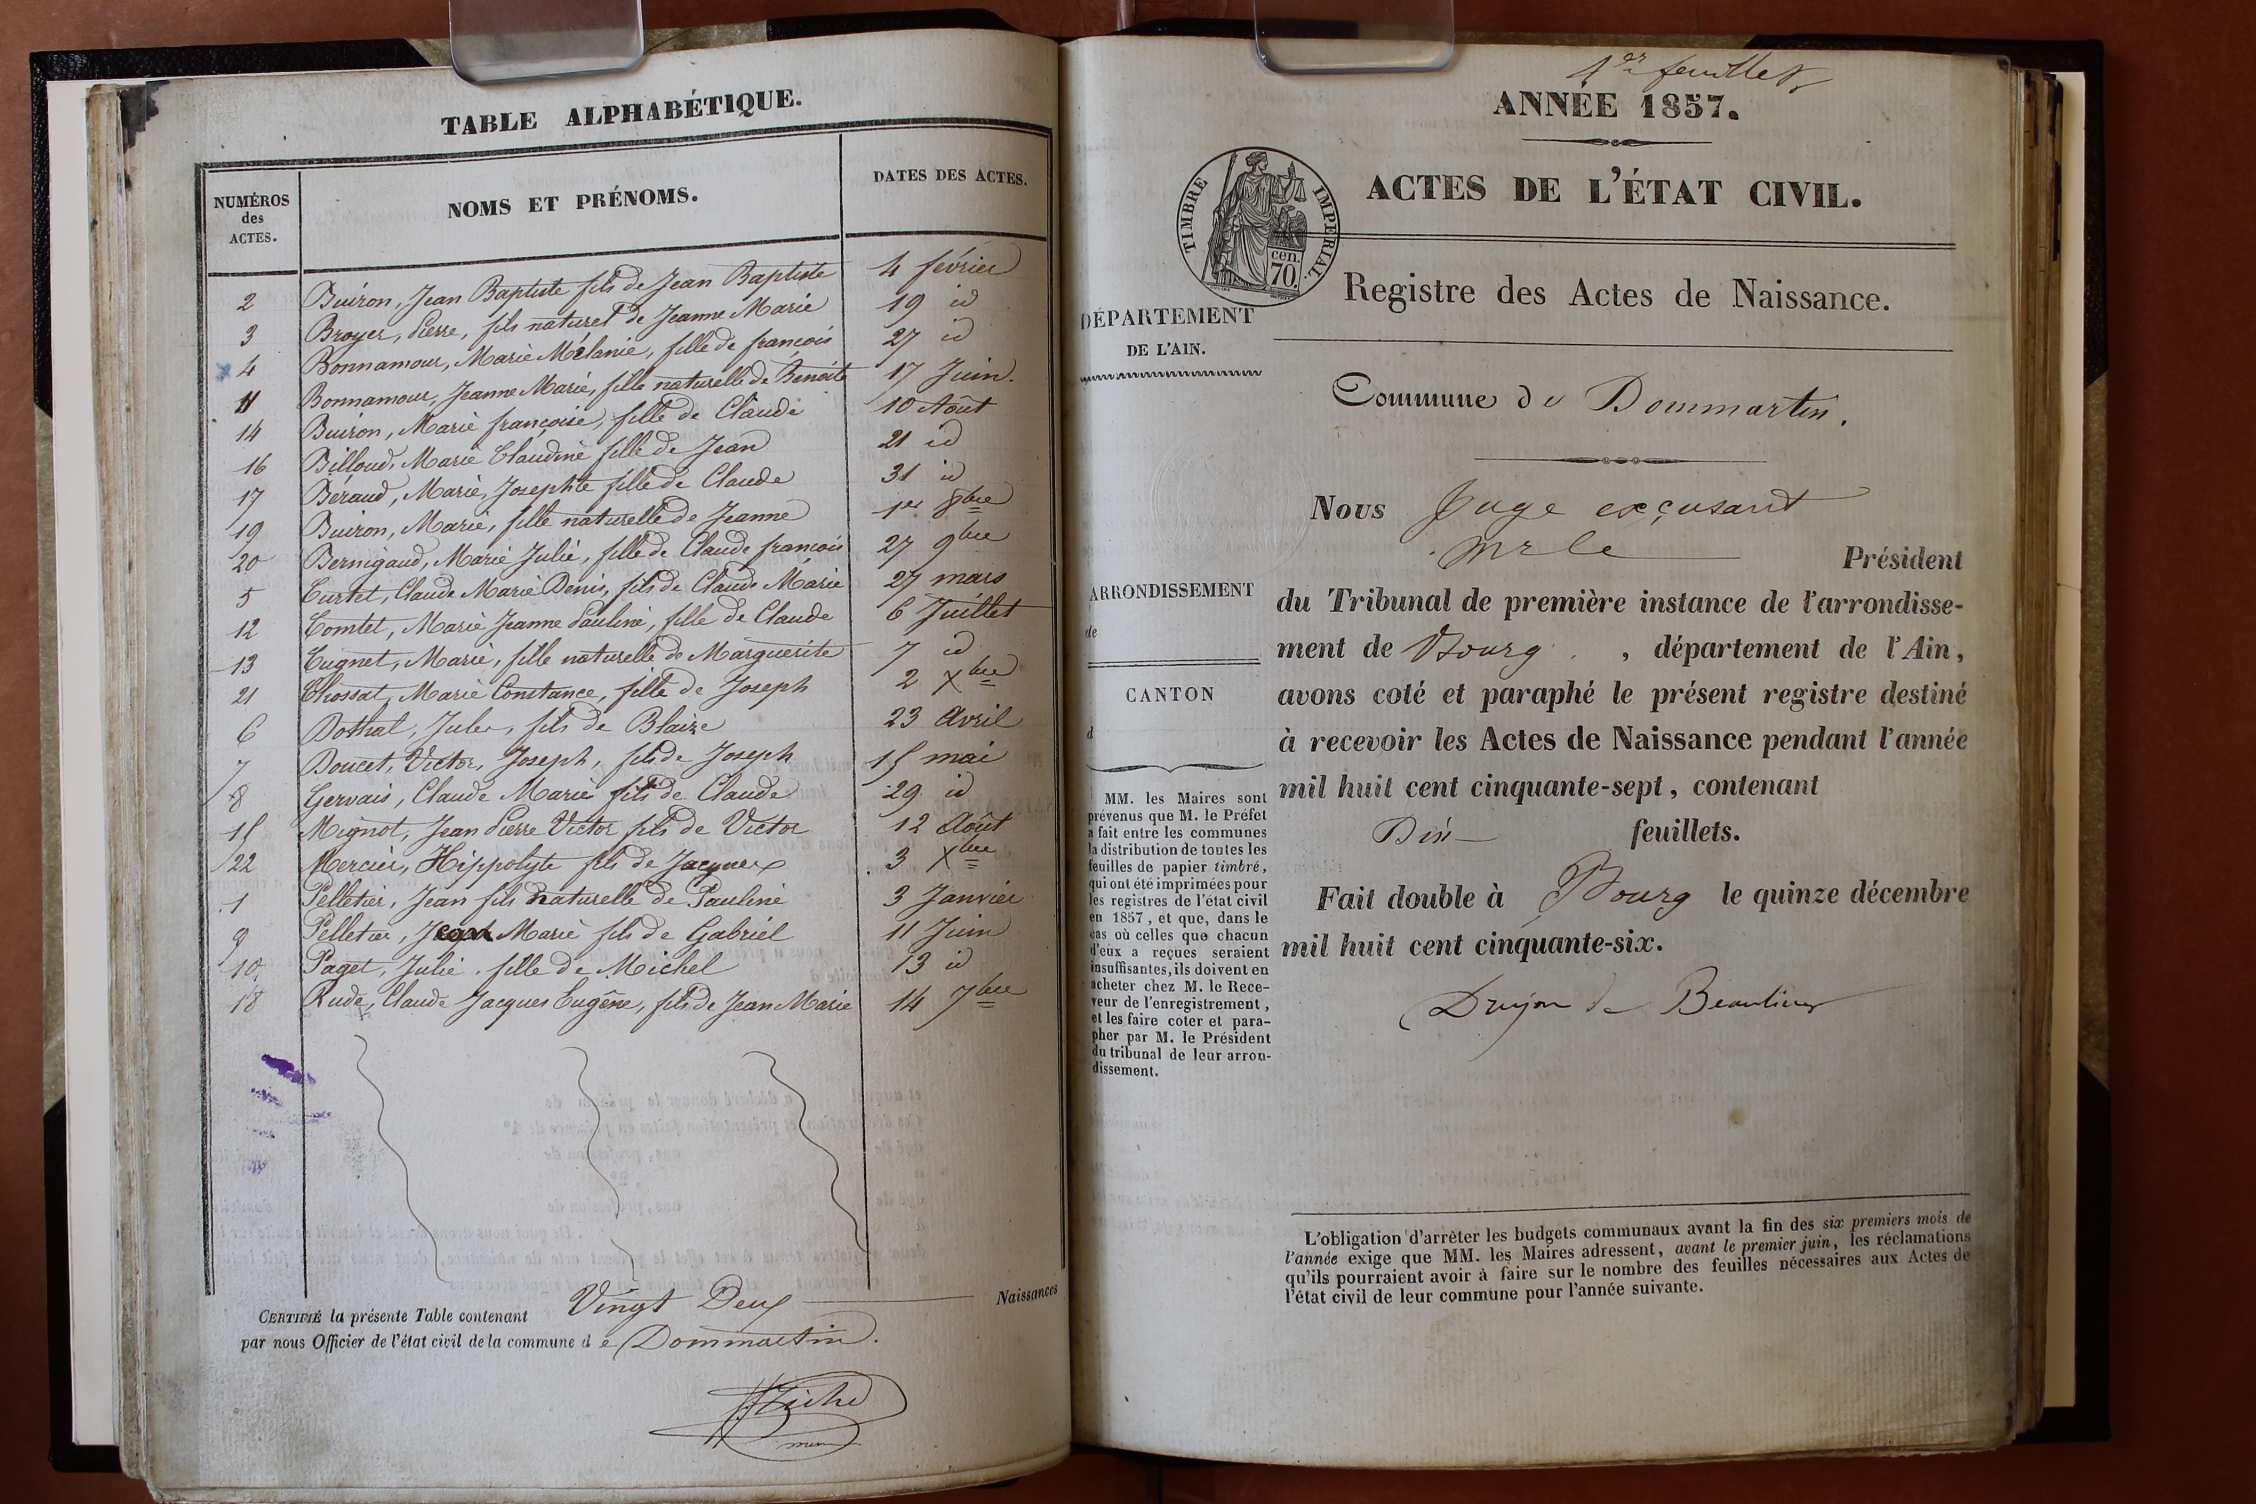 TABLE ALPHABÉTIQUE.
NUMÉROS des ACTES. NOMS ET PRÉNOMS. DATES DES ACTES.
2 Buiron, Jean Baptiste fils de Jean Baptiste 4 février
3 Broyer, Pierre, fils naturel de Jeanne Marie 19 id
4 Bonnamour, Marie Mélanie, fille de françois 27 id
11 Bonnamour, Jeanne Marie, fille naturelle de Benoite 17 Juin.
14 Buiron, Marie françoise, fille de Claude 10 Août
16 Billoud, Marie Claudine fille de Jean 21 id
17 Béraud, Marie, Josephte fille de Claude 31 id
19 Buiron, Marie, fille naturelle de Jeanne 1er 8bre
20 Bernigaud, Marie Julie, fille de Claude françois 27 9bre
5 Curtet, Claude Marie Denis, fils de Claude Marie 27 mars
12 Comtet, Marie Jeanne Pauline, fille de Claude 6 Juillet
13 Cugnet, Marie, fille naturelle de Marguerite 7 id
21 Chossat, Marie Constance, fille de Joseph 2 Xbre
6 Dothal, Jules, fils de Blaize 23 Avril
7 Doucet, Victor, Joseph, fils de Joseph 15 mai
8 Gervais, Claude Marie fils de Claude 29 id
15 Mignot, Jean Pierre Victor fils de Victor 12 Août
22 Mercier, Hippolyte fils de Jacques 3 Xbre
1 Pelletier, Jean fils naturelle de Pauline 3 Janvier
9 Pelletier, Marie fils de Gabriel 11 Juin
10 Paget, Julie, fille de Michel 13 id
18 Rude, Claude Jacques Eugêne, fils de Jean Marie 14 7bre
CERTIFIÉ la présente Table contenant Vingt Deux Naissances
par nous Officier de l'état civil de la commune d e Dommartin.
1er feuillet
ANNÉE 1857.
ACTES DE L'ÉTAT CIVIL.
TIMBRE IMPÉRIAL.
cen.
70.
Registre des Actes de Naissance.
DÉPARTEMENT
DE L'AIN.
Commune de Dommartin.
Nous Juge
Président
ARRONDISSEMENT
de
du Tribunal de première instance de l'arrondisse-
ment de Bourg , département de l'Ain,
CANTON
d
avons coté et paraphé le présent registre destiné
à recevoir les Actes de Naissance pendant l'année
mil huit cent cinquante-sept, contenant
Dix feuillets.
Fait double à Bourg le quinze décembre
mil huit cent cinquante-six.
Drujon de Beaulieu
MM. les Maires sont
prévenus que M. le Préfet
a fait entre les communes
la distribution de toutes les
feuilles de papier timbré,
qui ont été imprimées pour
les registres de l'état civil
en 1857, et que, dans le
cas où celles que chacun
d'eux a reçues seraient
insuffisantes, ils doivent en
acheter chez M. le Rece-
veur de l'enregistrement,
et les faire coter et para-
pher par M. le Président
du tribunal de leur arron-
dissement.
L'obligation d'arrêter les budgets communaux avant la fin des six premiers mois de
l'année exige que MM. les Maires adressent, avant le premier juin, les réclamations
qu'ils pourraient avoir à faire sur le nombre des feuilles nécessaires aux Actes de
l'état civil de leur commune pour l'année suivante.